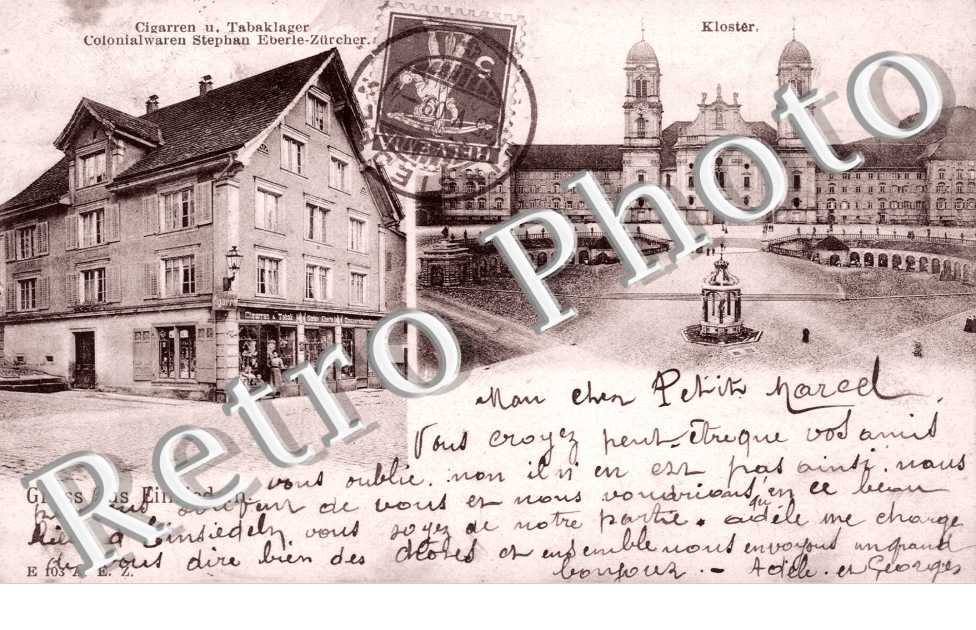 Cigarren u. Tabaklager
Colonialwaren Stephan Eberle-Zürcher.
Kloster.
Cigarren & Tabak
Retro Photo
Mon cher Petit Marcel
Vous croyez peut-être que vos amis
vous oublie. non il n'en est pas ainsi. nous
souvent de vous et nous voudrions qu'en ce beau
lieu d'Einsiedeln vous soyez de notre partie. adèle me charge
de vous dire bien des choses et ensemble nous envoyons un grand
bonjour. - Adèle et Georges
Gruss aus Einsiedeln.
E 103 A. E. Z.